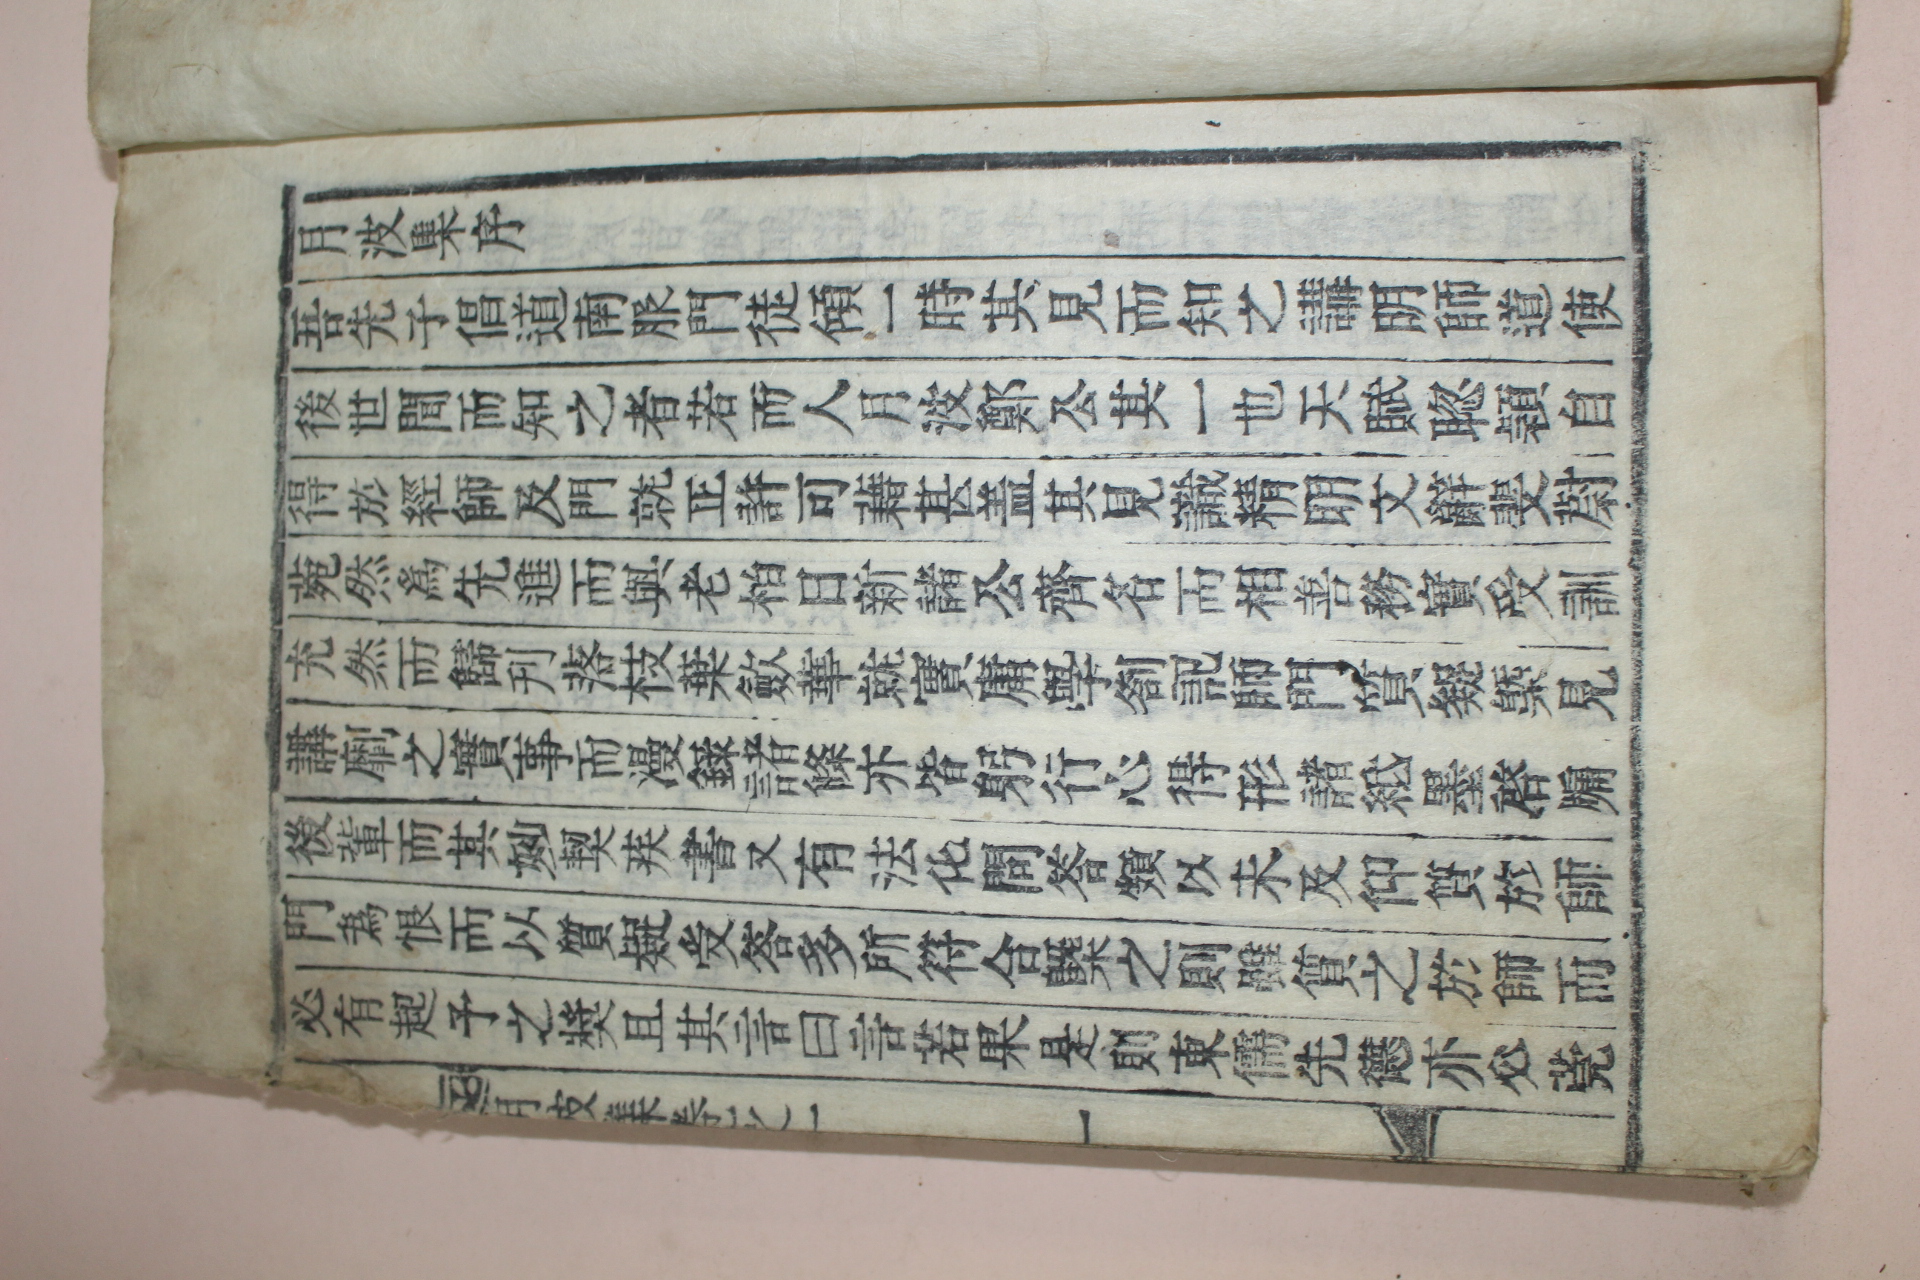 月波集序
吾先子倡道南服門徒傾一時其見而知之講明師道使
後世聞而知之者若而人月波鄭公其一也天賦聡穎自
得於經師及門就正許可藉甚盖其見識精明文辭斐蔚
菀然爲先進而與老栢日新諸公齊名而相善務實受訓
充然而歸刊落枝葉歛華就實庸學劄記師門質疑槩見
講劘之實事而漫錄諸條亦皆躬行心得形諸紙墨啓牖
後輩而其妙契疾書又有法化問答類以未及仰質於師
門爲恨而以質疑受答多所符合槩之則雖質之於師而
必有起予之奬且其言曰言若果是則東儒先德亦必莞
月波集卷之一
一